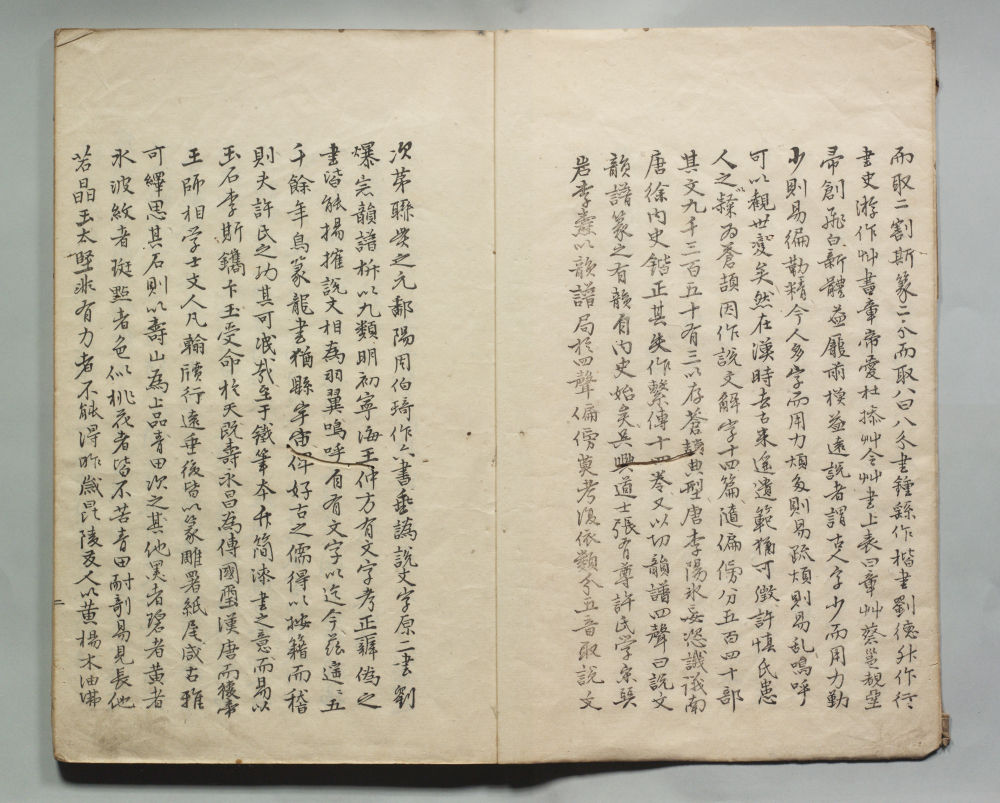 而取二割斯篆二分而取八曰八分書鍾繇作楷書劉德升作行
書史游作艸書章帝愛杜操艸令艸書上表曰章艸蔡邕觀堊
帚創飛白新體益龐雨模益遠説者謂古人字少而用力勤
少則易徧勤精今人多字而用力煩多則易疏煩則易乱嗚呼
可以觀世變矣然在漢時去古未遙遺範猶可徵許慎氏患
人之繇為蒼頡因作說文解字十四篇隨偏傍分五百四十部
其文九千三百五十有三以存蒼頡典型唐李陽氷妄恣譏議南
唐徐內史鍇正其失作繫傳十四卷又以切韻譜四聲曰說文
韻譜篆之有韻自內史始矣吳興道士張有尊許氏学宗巽
岩李燾以韻譜局於四聲偏傍莫考復依類分五音取說文
次第聯紫之元鄱陽周伯琦作六書垂譌說文字原二書劉
爆完韻譜柝以九類明初寧海王仲方有文字考正辯偽之
書皆能揚搉說文相為羽翼嗚呼自有文字以迄今茲遙〻五
千餘年鳥篆龍書猶縣宇宙俾好古之儒得以按籍而稽
則夫許氏之功其可泯哉至于鐵筆本於簡漆書之意而易以
玉石李斯鐫卞玉受命於天既壽永昌為傳國璽漢唐而穣率
王師相学士文人凡翰牘行遠垂後皆以篆雕署紙尾咸古雅
可繹思其石則以壽山為上品青田次之其他黑者碧者黃者
氷波紋者斑點者色似桃花者皆不苦青田耐剞易見長他
若晶玉太堅非有力者不能得昨嵗毘陵友人以黄楊木油沸